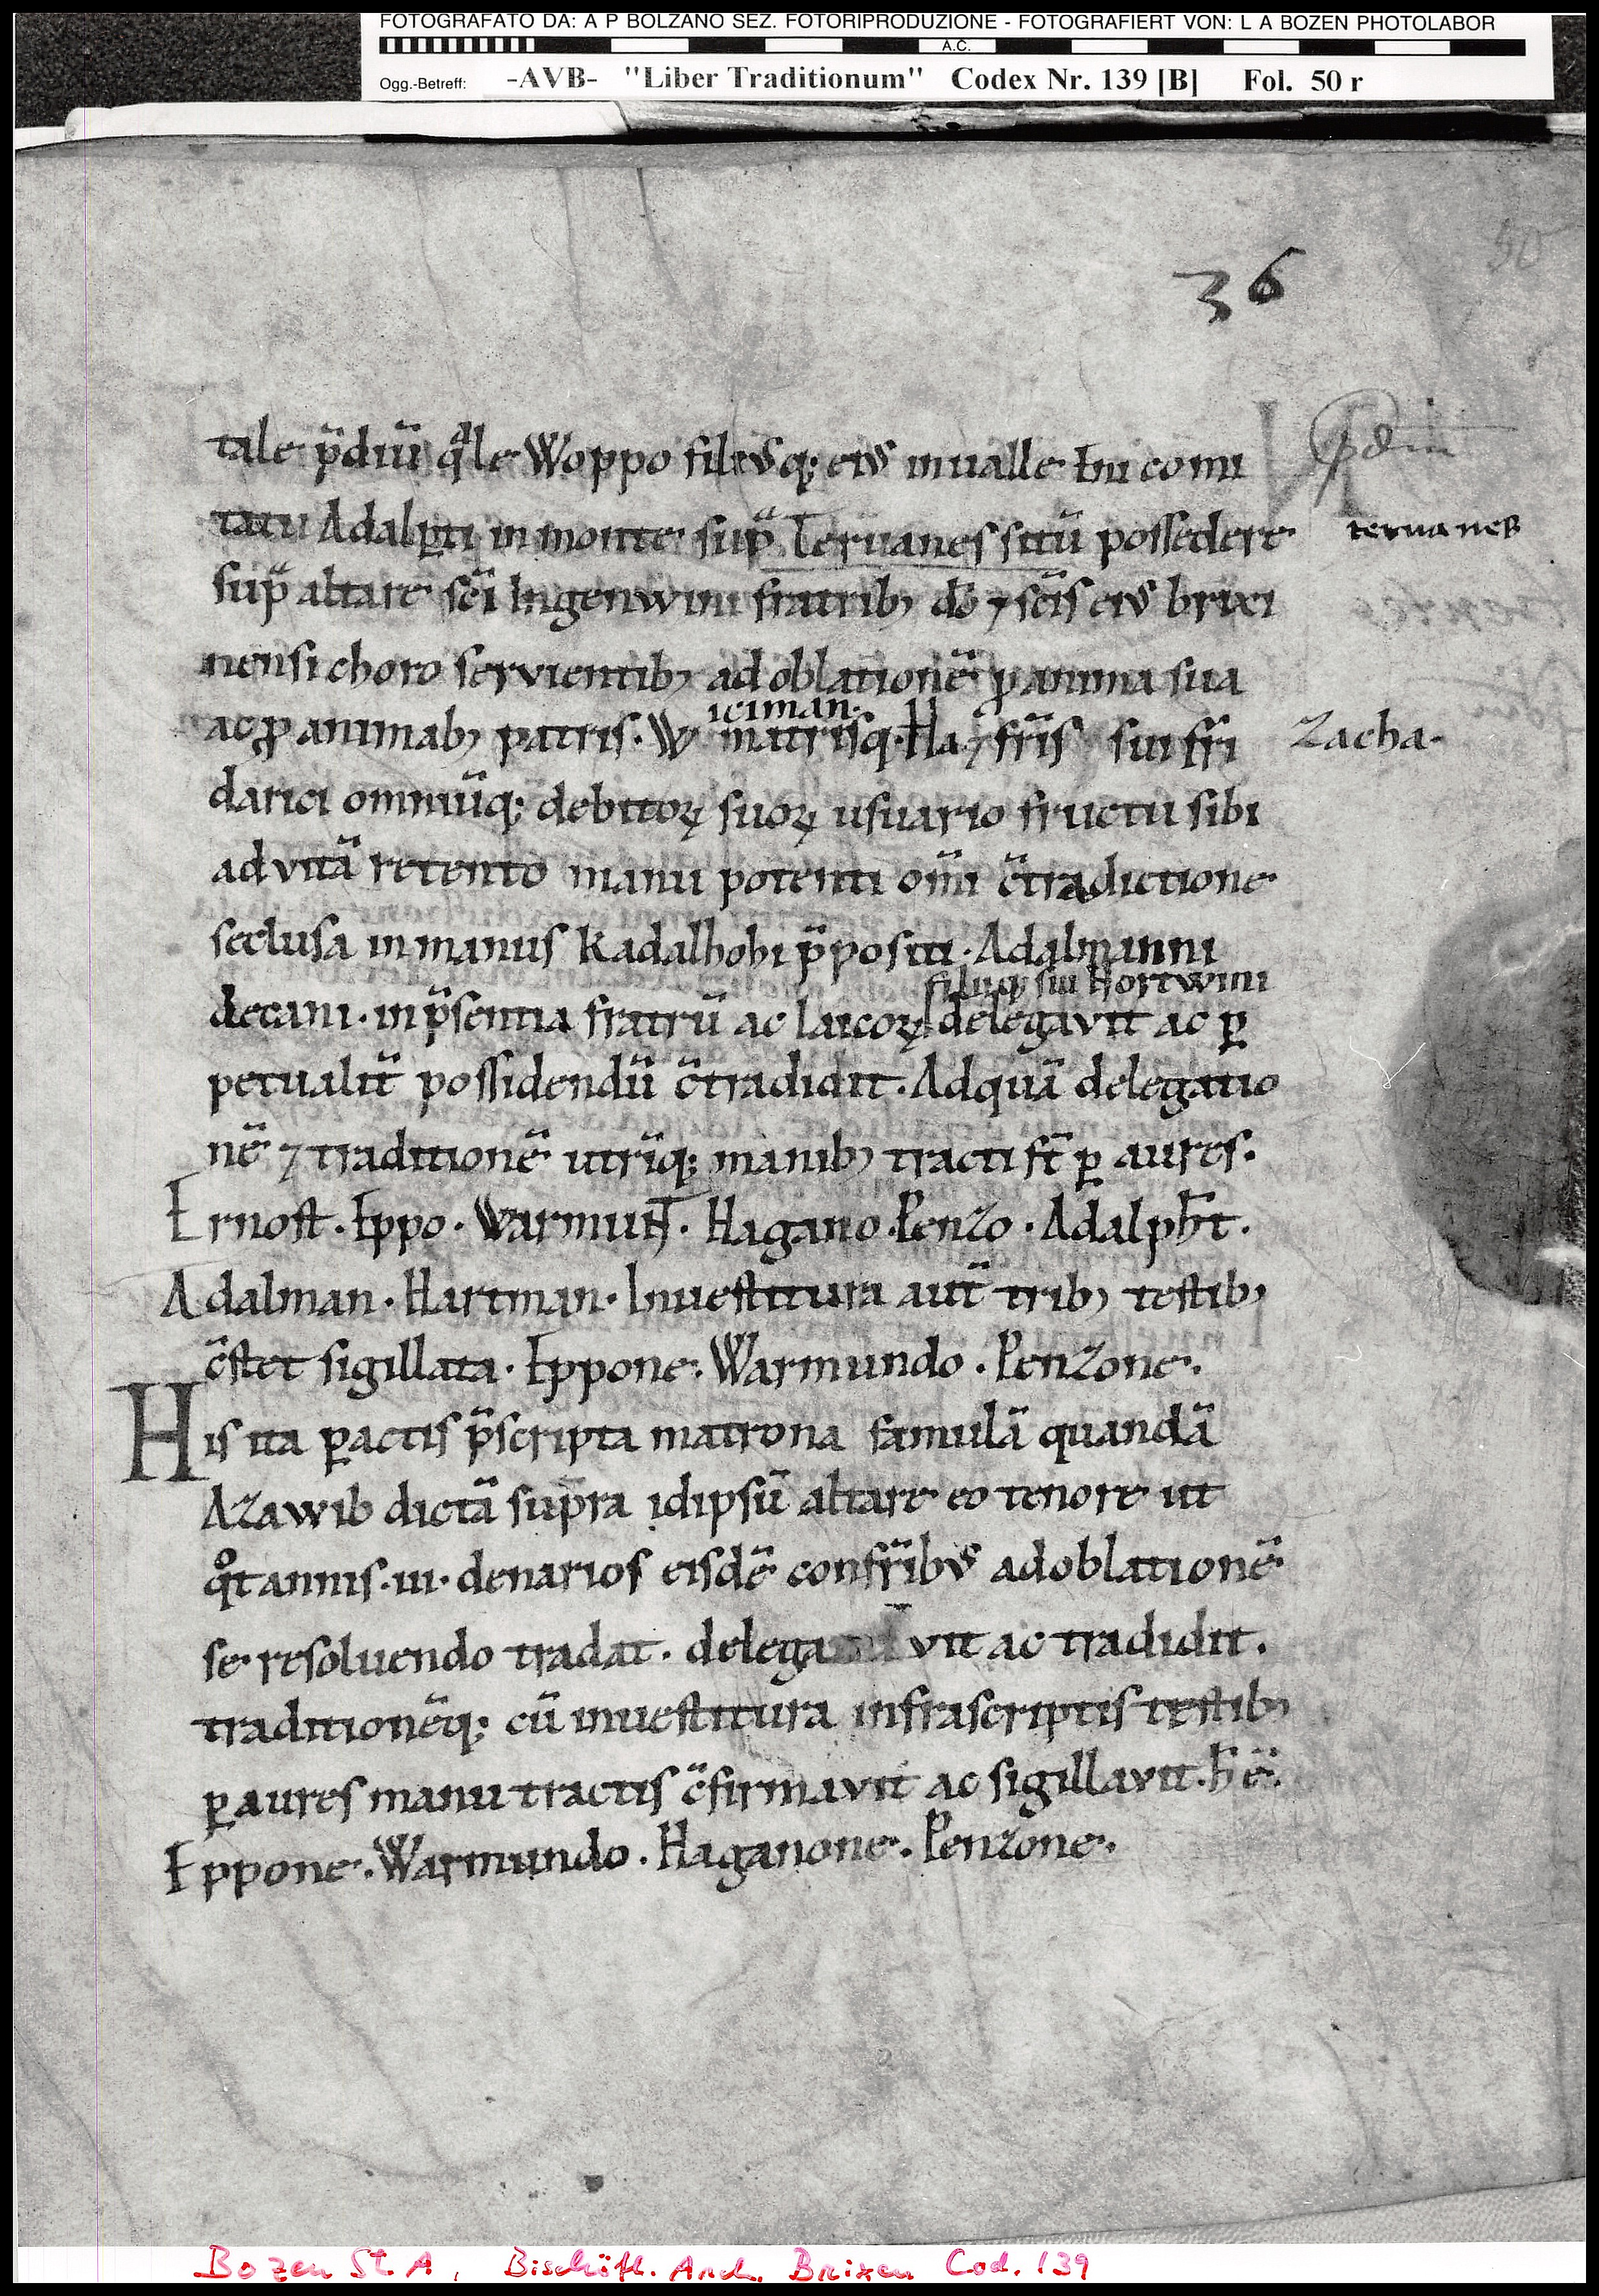 FOTOGRAFATO DA: A P BOLZANO SEZ. FOTORIPRODUZIONE - FOTOGRAFIERT VON: L A BOZEN PHOTOLABOR
A.C.
Ogg.-Betreff: -AVB- "Liber Traditionum" Codex Nr. 139 [B] Fol. 50 r
50
36
tale p̄diū qͣle Woppo filiusq; eiꝰ in ualle Eni comi
tatu Adalꝑti in monte sup̄ Teruanes sitū possedere
teruanes
sup̄ altare sc̄i Ingenwini fratribꝫ dō ⁊ sc̄is eiꝰ brixi
nensi choro servientibꝫ ad oblationē ꝓ anima sua
iciman.
ac ꝓ animabꝫ patris. W matrisq. Ha. ⁊ fr̄is sui fri
Zacha.
darici omniūq; debitoꝝ suoꝝ usuario fructu sibi
ad vitā retento manu potenti om̄i c̄tradictione
seclusa in manus Kadalhohi p̄positi. Adalmanni
filiiq; sui Hortwini
decani. in p̄sentia fratrū ac laicoꝝ delegavit ac ꝑ
petualit̄ possidendū c̄tradidit. Ad quā delegatio
nē ⁊ traditionē utriq; manibꝫ tracti st̄ ꝑ aures.
Ernost. Eppo. Warmunt. Hagano. Penzo. Adalpħt.
Adalman. Hartman. Inuestitura aut̄ tribꝫ testibꝫ
c̄stet sigillata. Eppone. Warmundo. Penzone.
His ita ꝑactis p̄scripta matrona famulā quandā
Azawib dictā supra idipsū altare eo tenore ut
qͦt annis. iii. denarios eisdē confr̄ibꝰ ad oblationē
se resoluendo tradat. delega vit ac tradidit.
traditionēq; cū inuestitura infrascriptis testibꝫ
ꝑ aures manu tractis c̄firmavit ac sigillavit. h̄ ē.
Eppone. Warmundo. Haganone. Penzone.
Bozen St. A, Bischöfl. Arch. Brixen Cod. 139